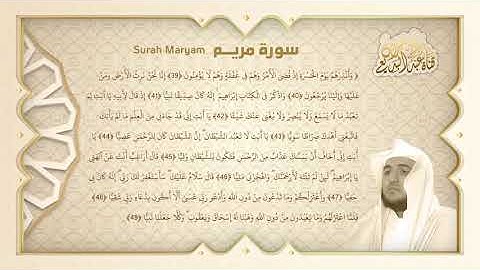 سورة مريم Surah Maryam
﴿ وَأَنذِرْهُمْ يَوْمَ الْحَسْرَةِ إِذْ قُضِيَ الْأَمْرُ وَهُمْ فِي غَفْلَةٍ وَهُمْ لَا يُؤْمِنُونَ (39) إِنَّا نَحْنُ نَرِثُ الْأَرْضَ وَمَنْ
عَلَيْهَا وَإِلَيْنَا يُرْجَعُونَ (40) وَاذْكُرْ فِي الْكِتَابِ إِبْرَاهِيمَ إِنَّهُ كَانَ صِدِّيقًا نَبِيًّا (41) إِذْ قَالَ لِأَبِيهِ يَا أَبَتِ لِمَ
تَعْبُدُ مَا لَا يَسْمَعُ وَلَا يُبْصِرُ وَلَا يُغْنِي عَنْكَ شَيْئًا (42) يَا أَبَتِ إِنِّي قَدْ جَاءَنِي مِنَ الْعِلْمِ مَا لَمْ يَأْتِكَ
فَاتَّبِعْنِي أَهْدِكَ صِرَاطًا سَوِيًّا (43) يَا أَبَتِ لَا تَعْبُدِ الشَّيْطَانَ إِنَّ الشَّيْطَانَ كَانَ لِلرَّحْمَنِ عَصِيًّا (44) يَا
أَبَتِ إِنِّي أَخَافُ أَنْ يَمَسَّكَ عَذَابٌ مِنَ الرَّحْمَنِ فَتَكُونَ لِلشَّيْطَانِ وَلِيًّا (45) قَالَ أَرَاغِبٌ أَنْتَ عَنْ آلِهَتِي
يَا إِبْرَاهِيمُ لَئِنْ لَمْ تَنْتَهِ لَأَرْجُمَنَّكَ وَاهْجُرْنِي مَلِيًّا (46) قَالَ سَلَامٌ عَلَيْكَ سَأَسْتَغْفِرُ لَكَ رَبِّي إِنَّهُ كَانَ بِي
حَفِيًّا (47) وَأَعْتَزِلُكُمْ وَمَا تَدْعُونَ مِنْ دُونِ اللَّهِ وَأَدْعُو رَبِّي عَسَى أَلَّا أَكُونَ بِدُعَاءِ رَبِّي شَقِيًّا (48)
فَلَمَّا اعْتَزَلَهُمْ وَمَا يَعْبُدُونَ مِنْ دُونِ اللَّهِ وَهَبْنَا لَهُ إِسْحَاقَ وَيَعْقُوبَ وَكُلًّا جَعَلْنَا نَبِيًّا (49)